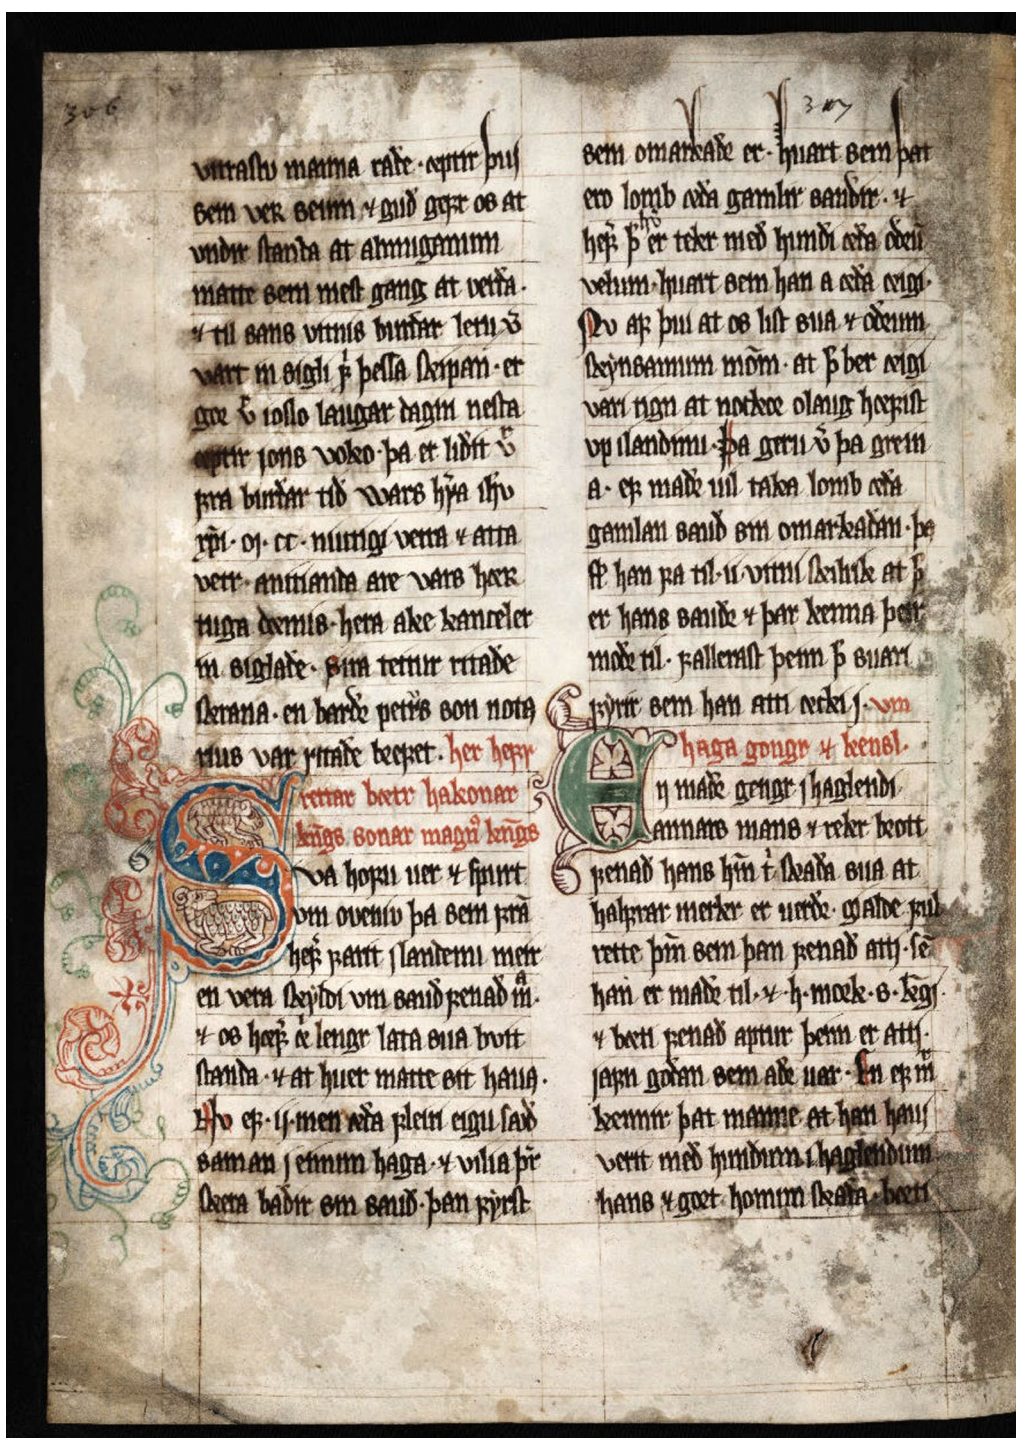 306
vitrasto manna raðe· eptir þui
sem ver seum ⁊ guð gefr os at
vndir standa at almuganum
matte sem mest gang at verða·
⁊ til sans vitnis burðar letu v̄
vart in sigli f̄ þessa skipan· er
gor v̄ ioslo laugar dagin nesta
eptir jons voko· þa er liðit v̄
fra burðar tið vars h̄ra ih̄u
xp̄i· m· cc· niutigi vetra ⁊ atta
vetr· annanda are vars her
tuga doemis· hera ake kanceler
in siglaðe· sira teitur ritaðe
skrana· en barðe petr̄s son nota
rius var ritaðe breket· her hefr
rettar bœtr hakonar
kn̄gs sonar magn᷒ kn̄gs
Sva hofu uer ⁊ spurt
vm ovenio þa sem fra᷎
hef͛ farit j slandenni meir
en vera skyldi vm sauð fenað m̄·
⁊ os hœf͛ ē lengr lata sua buit
standa· ⁊ at huer matte sit haua·
Nv ef· ij· men eða flein eigu sauð
saman j einum haga· ⁊ vilia þr̄
skera baðir sin sauð· þan fyrst
307
sem omarkaðe er· huart sem þat
ero lomb eða gamlir sauðir· ⁊
hef͛ þ̄ er reker með hundi eða oðrū
velum· huart sem han a eða eigi·
Nv af þui at os list sua ⁊ oðrum
skynsamum mōm· at þ̄ ber eigi
vari tign at nockor olaug hœfist
vp i landinu· Þa geru v̄ þa grein
a· ef maðr uil taka lomb eða
gamlan sauð sin omarkaðan· þa
sk̄ han fa til· ij vitni skilrik at þ̄
er hans sauðr ⁊ þar kenna þeir
moðr til· fallerast þenn þ̄ suari
fyrir sem han atti ecki j· vm
haga gongr ⁊ kensl·
En maðr gengr j haglendi
annars mans ⁊ reker brott
fenað hans h̄m t̄ skaða sua at
halfrar merker er uerðr· gialde ful
rette þm̄ sem þan fenað atti· sē
han er maðr til· ⁊· h· mork· s· kn̄gi·
⁊ bœti fenað aptur þenn er atti·
jafn goðan sem aðr uar· En ef m̄
kennir þat manne at han haui
verit með hundum i haglendum
hans ⁊ gort honum skaða· bœti